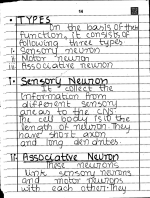 TYPES
On the basis of their
function, it consists of
following three types
1. Sensory Neuron
2. Motor neuron
3. Associative Neuron
I. Sensory Neuron
It collect the
information from
different sensory
areas to the CNS.
The cell body is to the
length of neuron They
have short axon
and long dendrites.
II. Associative Neuron
These neurons
link sensory neurons
and motor neurons
with each other. They